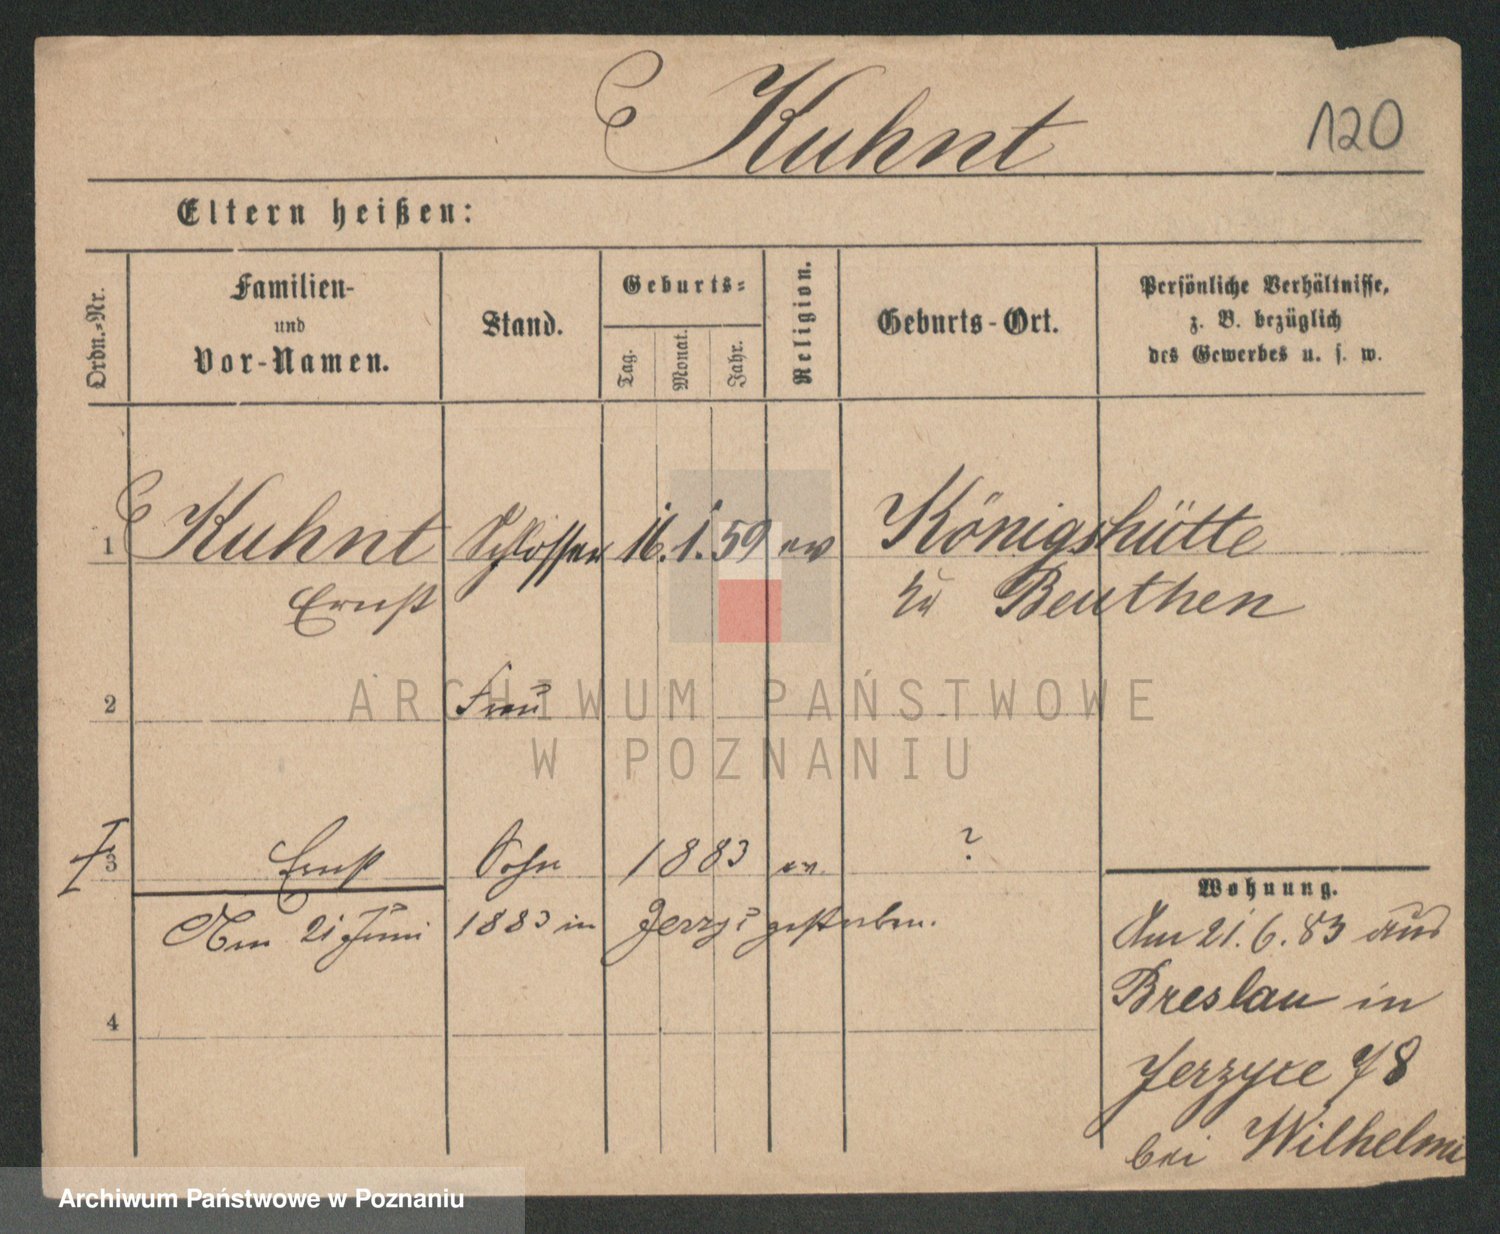 Kuhnt
120
Eltern heißen:
Ordn.-Nr.
Familien-
und
Vor-Namen.
Stand.
Geburts-
Tag.
Monat.
Jahr.
Religion.
Geburts-Ort.
Persönliche Verhältnisse,
z. B. bezüglich
des Gewerbes u. s. w.
1 Kuhnt Schlosser 16. 1. 59 ev Königshütte
Ernst zu Beuthen
2 Frau
3 Ernst Sohn 1883 ev. ?
Am 21 Juni 1883 in gestorben.
4
Wohnung.
Am 21. 6. 83 aus
Breslau in
78
bei Wilhelmi
ARCHIWUM PAŃSTWOWE
W POZNANIU
Archiwum Państwowe w Poznaniu